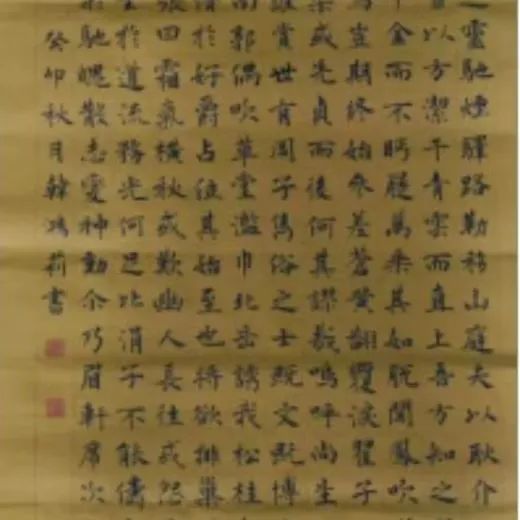 靈馳煙驛路勒移山庭夫以耿介
以方潔干青雲而直上吾方知之
金而不眄屣萬乘其如脫聞鳳吹
豈期終始參差蒼黃翻覆淚翟子
染或先貞而後何其謬哉嗚呼尚生
誰賞世有周子雋俗之士既文既博
南郭偶吹草堂濫巾北岳誘我松桂
情於好爵占位其始至也將欲排巢
張日霜氣橫秋或歎幽人長往或怨
於道流務光何足比涓子不能儔
馳魄散志變神動尒乃眉軒席次
癸卯秋月韓鴻莉書